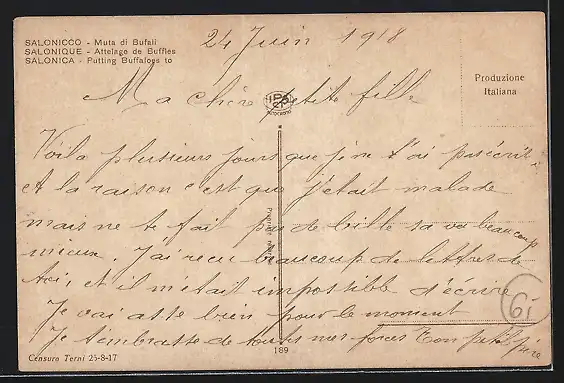 SALONICCO - Muta di Bufali
SALONIQUE - Attelage de Buffles
SALONICA - Putting Buffaloes to
24 Juin 1918
Produzione
Italiana
Ma chère petite fille
Voila plusieurs jours que je ne t'ai pas écrit
et la raison c'est que j'était malade
mais ne te fait pas de bille sa va beaucoup
mieux. J'ai reçu beaucoup de lettres de
toi, et il m'était impossible d'écrire
Je vai asse bien pour le moment
Je t'embrasse de toutes mes forces Ton petit père
61
189
Censura Terni 25-8-17